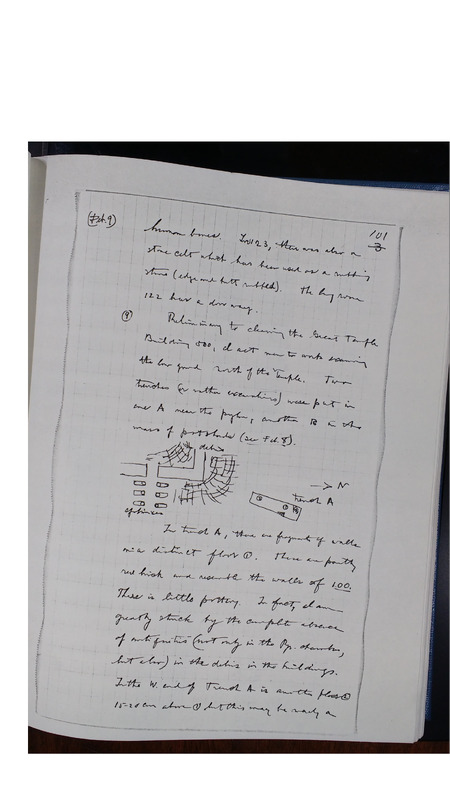 101
(Feb. 9)
human bones. In 123, there was also a
stone celt which has been used as a rubbing
stone (edge and butt rubbed). The big room
122 has a doorway.
(9) Preliminary to clearing the Great Temple
Building 500, I set men to work examining
the low ground north of the Temple. Two
trenches (or rather excavations) were put in
one A near the pylon, another B in the
mass of potsherds (see Feb 8).
debris
→ N
Trench A
sphinxes
In trench A, there are fragments of walls
on a distinct floor ①. These are partly
red brick and resemble the walls of 100.
There is little pottery. In fact, I am
greatly struck by the complete absence
of antiquities (not only in the Py. chambers,
but also) in the debris in the buildings.
In the W. end of Trench A is another floor ②
15-20 cm above ① but this may be only a